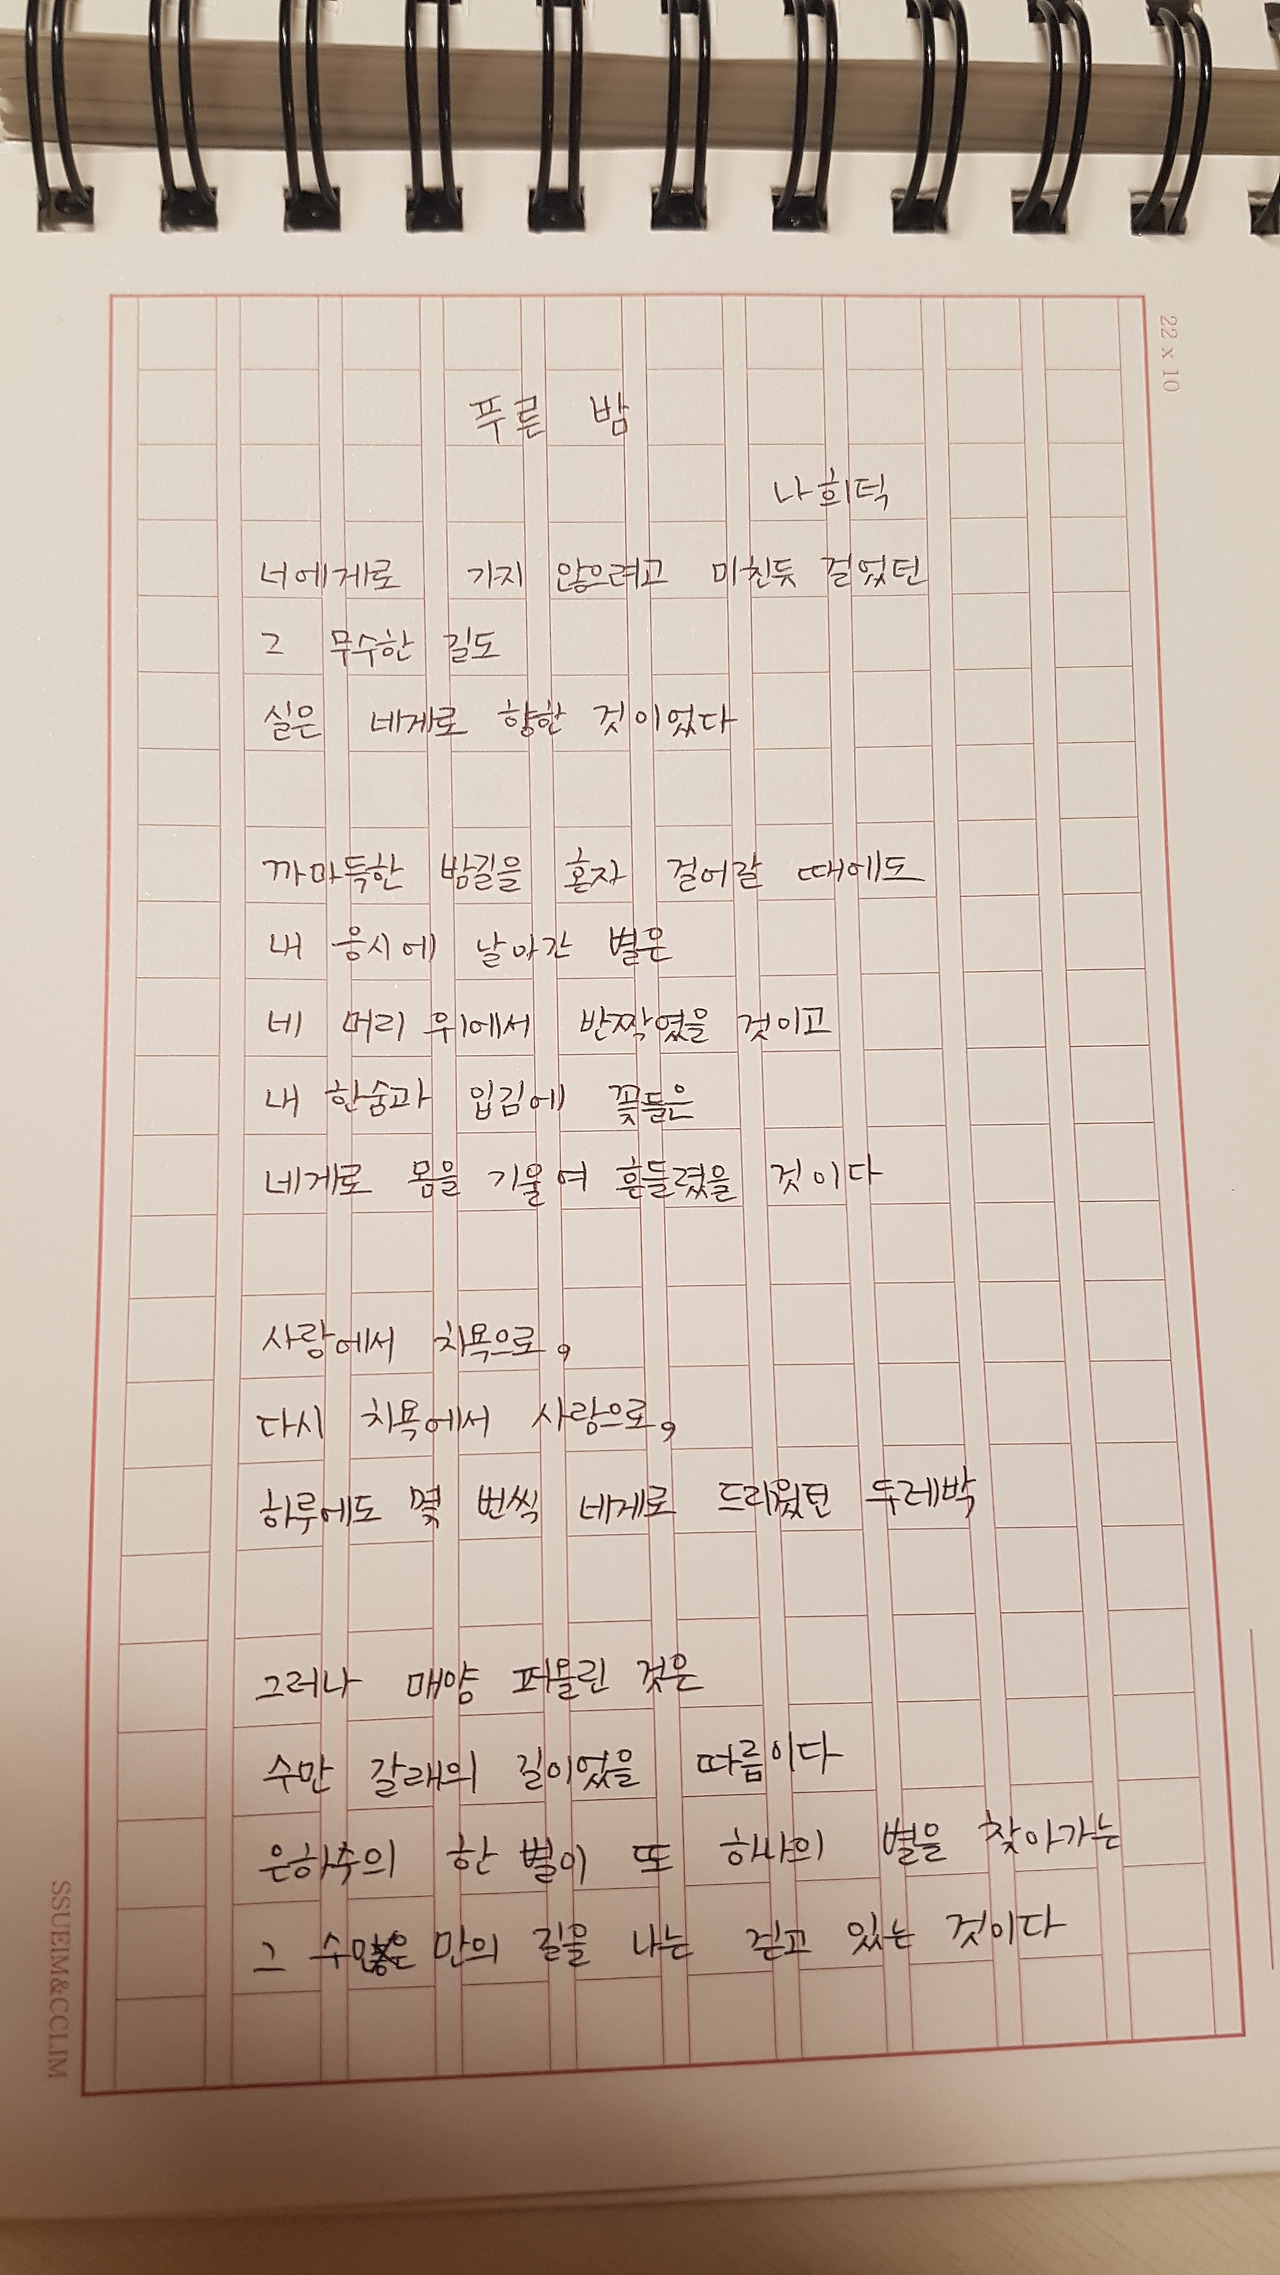 22 x 10
푸른 밤
나희덕
너에게로 가지 않으려고 미친듯 걸었던
그 무수한 길도
실은 네게로 향한 것이었다
까마득한 밤길을 혼자 걸어갈 때에도
내 응시에 날아간 별은
네 머리 위에서 반짝였을 것이고
내 한숨과 입김에 꽃들은
네게로 몸을 기울여 흔들렸을 것이다
사랑에서 치욕으로,
다시 치욕에서 사랑으로,
하루에도 몇 번씩 네게로 드리웠던 두레박
그러나 매양 퍼올린 것은
수만 갈래의 길이었을 따름이다
은하수의 한 별이 또 하나의 별을 찾아가는
그 수만 만의 길을 나는 걷고 있는 것이다
SSUEIM&CCLIM